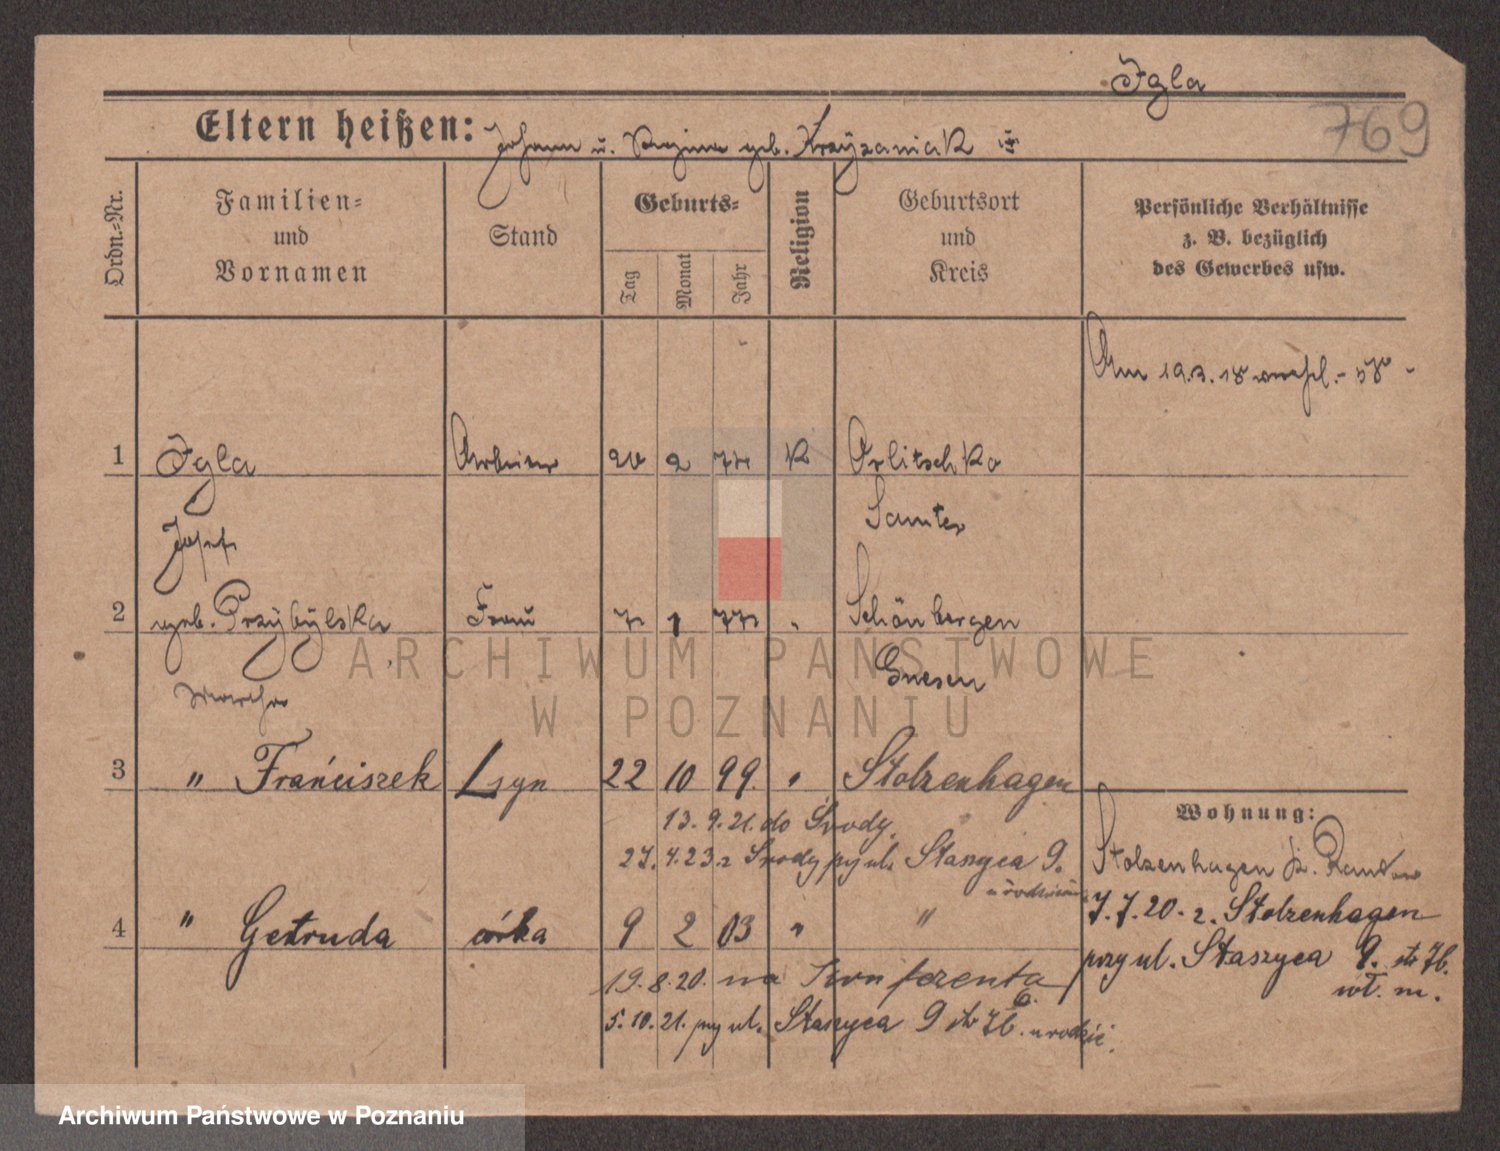 Igla
769
Eltern heißen: Johann u. Regina geb. Krzyżaniak
Ordn.-Nr.
Familien-
und
Vornamen
Stand
Geburts-
Tag
Monat
Jahr
Religion
Geburtsort
und
Kreis
Persönliche Verhältnisse
z. B. bezüglich
des Gewerbes usw.
Am 19.3.18
1 Igla Arbeiter 20 2 K Orlitschko
Josef Samter
2 geb. Przybylska Frau 7 1 " Schönbergen
Martha Gnesen
3 " Franciszek syn 22 10 99. " Stolzenhagen
13. 9. 21. do Środy.
27. 4. 23 z Środy przy ul. Staszyca 9.
Wohnung:
Stolzenhagen K. Randow
4 " Gertruda córka 9 2 03 " "
7. 7. 20. z Stolzenhagen
przy ul. Staszyca 9. 7b.
wł. m.
19. 8. 20. na
5. 10. 21. przy ul. Staszyca 9 7b.
ARCHIWUM PAŃSTWOWE
W POZNANIU
Archiwum Państwowe w Poznaniu